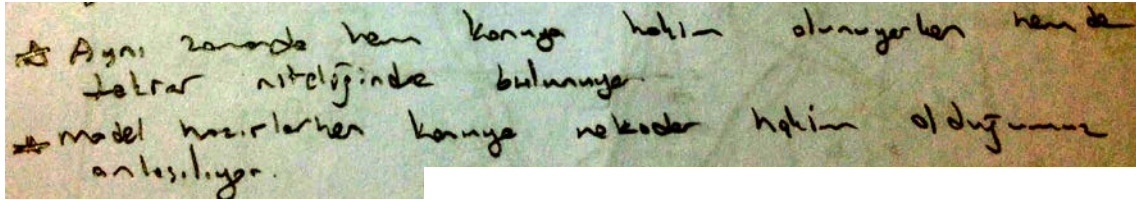 ☆ Aynı zamanda hem konuya hakim olunuyorken hem de
tekrar niteliğinde bulunuyor.
☆ model hazırlarken konuya nekadar hakim olduğumuz
anlaşılıyor.